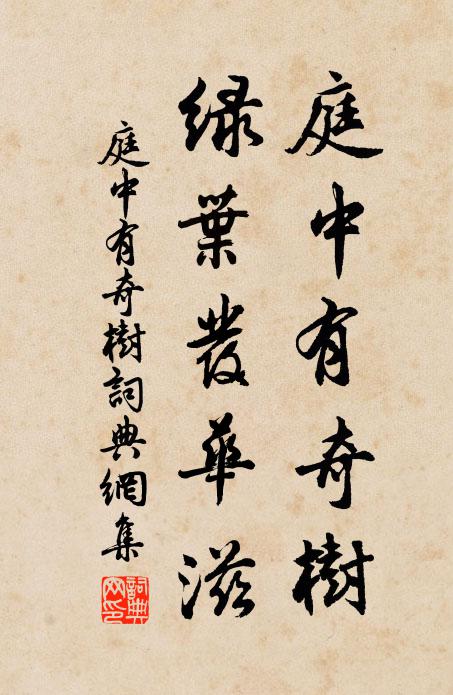 庭中有奇樹
綠葉發華滋
庭中有奇樹詞典網集
詞典網印